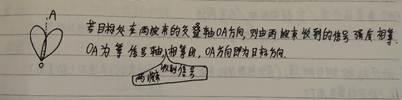 A
若目标处在两波束的交叠轴OA方向,则由两波束收到的信号强度相等.
OA为等信号轴,相等时,OA方向即为目标方向.
两波束收到信号
O